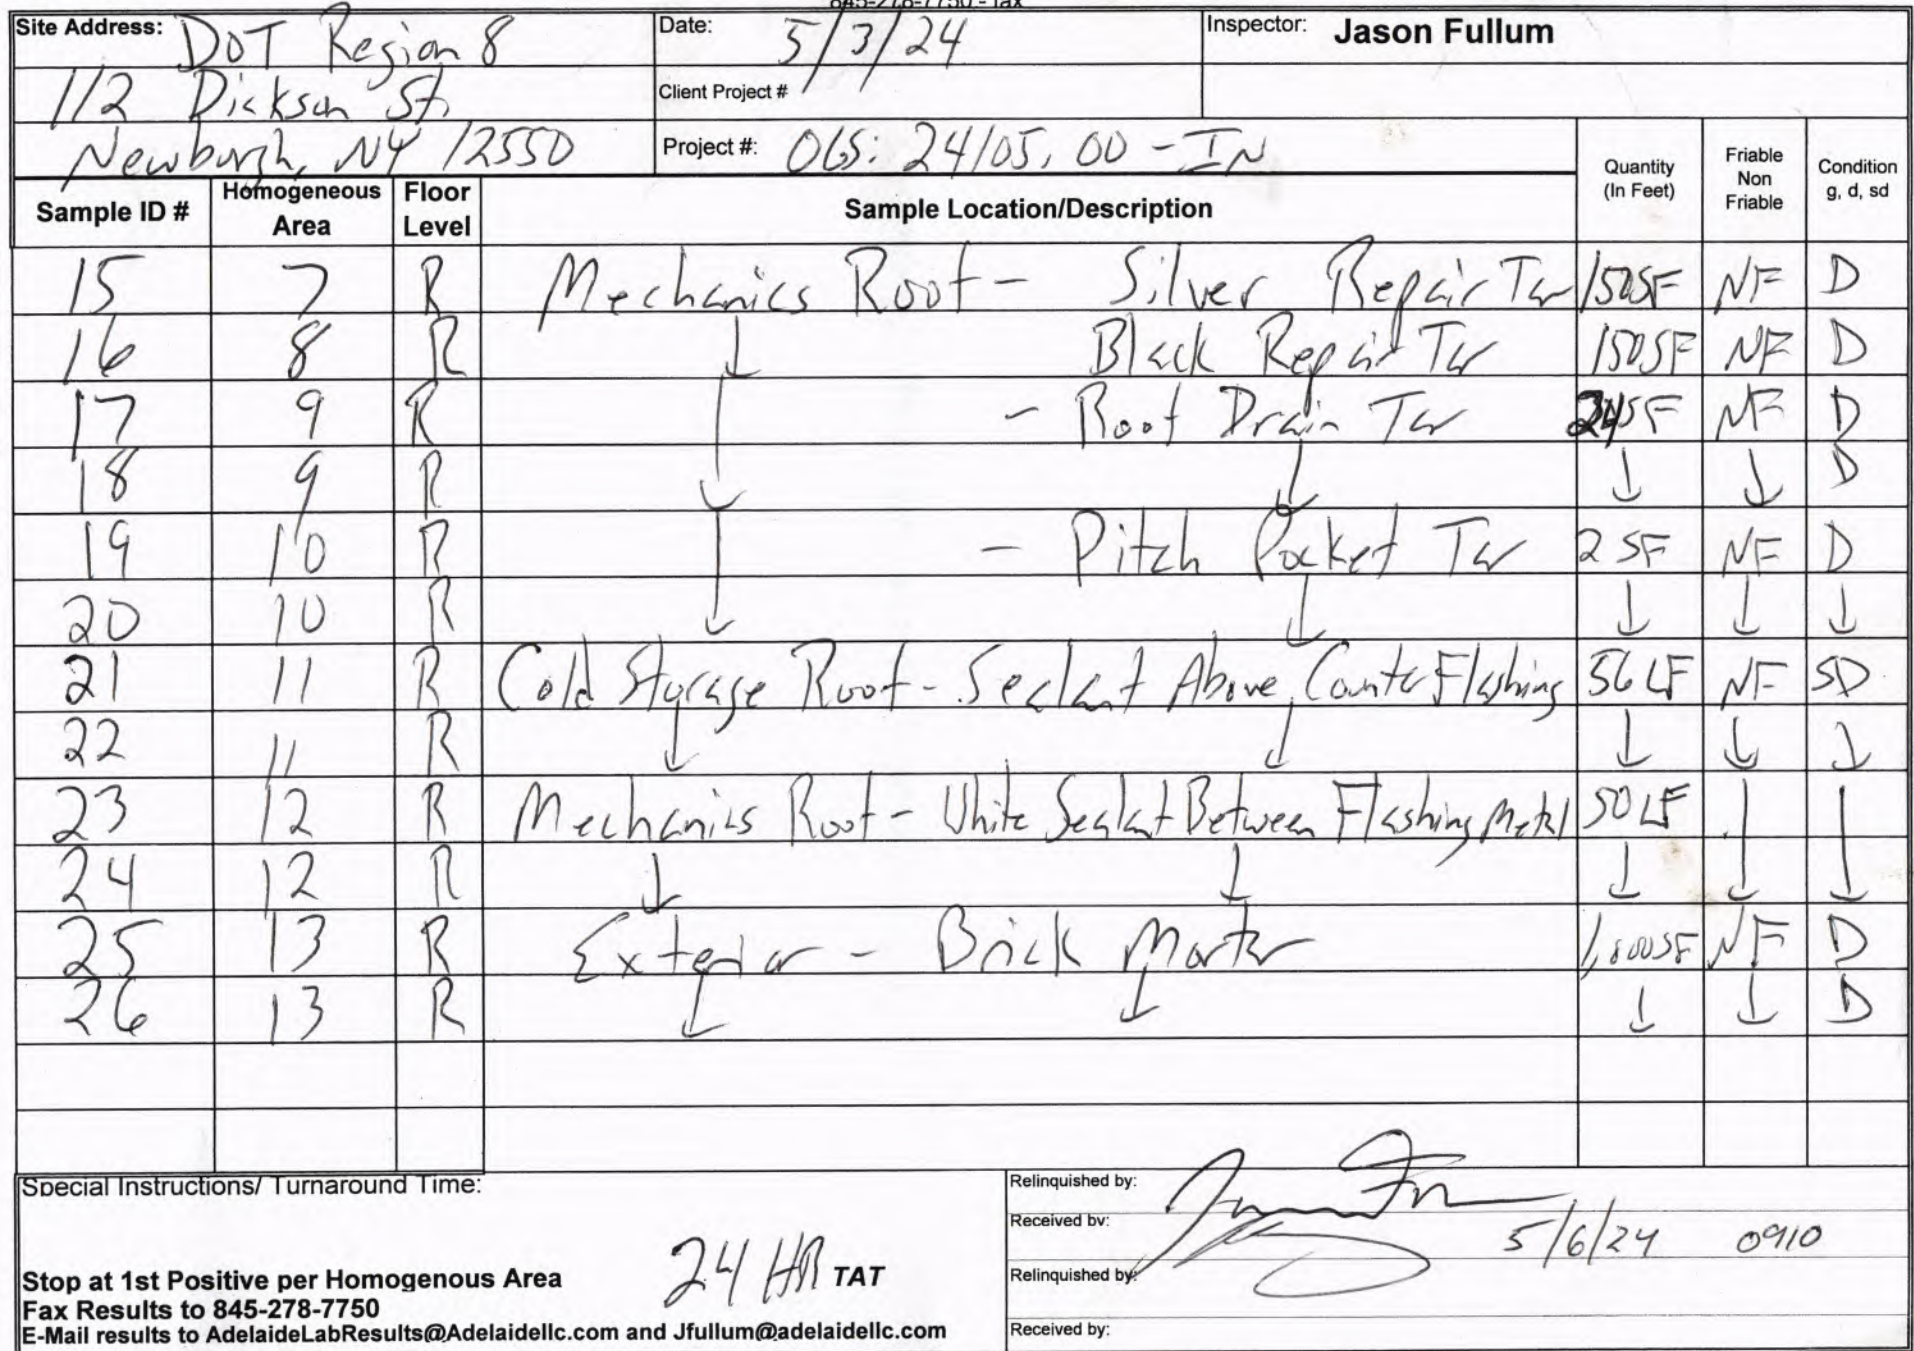 845-278-7750 - fax
Site Address: DOT Region 8 Date: 5/3/24 Inspector: Jason Fullum
112 Dickson St. Client Project #
Newburgh, NY 12550 Project #: OGS: 24105.00 - IN Quantity (In Feet) Friable Non Friable Condition g, d, sd
Sample ID # Homogeneous Area Floor Level Sample Location/Description
15 7 R Mechanics Roof - Silver Repair Tar 150SF NF D
16 8 R ↓ Black Repair Tar 150SF NF D
17 9 R - Roof Drain Tar 24SF NF D
18 9 R ↓ ↓ ↓ ↓ D
19 10 R - Pitch Pocket Tar 2 SF NF D
20 10 R ↓ ↓ ↓ ↓ ↓
21 11 R Cold Storage Roof - Sealant Above Counter Flashing 56 LF NF SD
22 11 R ↓ ↓ ↓ ↓ ↓
23 12 R Mechanics Roof - White Sealant Between Flashing Metal 50 LF
24 12 R ↓ ↓ ↓ ↓ ↓
25 13 R Exterior - Brick Mortar 1,800SF NF D
26 13 R ↓ ↓ ↓ ↓ D
Special Instructions/ Turnaround Time:
24 HR TAT
Stop at 1st Positive per Homogenous Area
Fax Results to 845-278-7750
E-Mail results to AdelaideLabResults@Adelaidellc.com and Jfullum@adelaidellc.com
Relinquished by:
Received by: 5/6/24 0910
Relinquished by:
Received by: